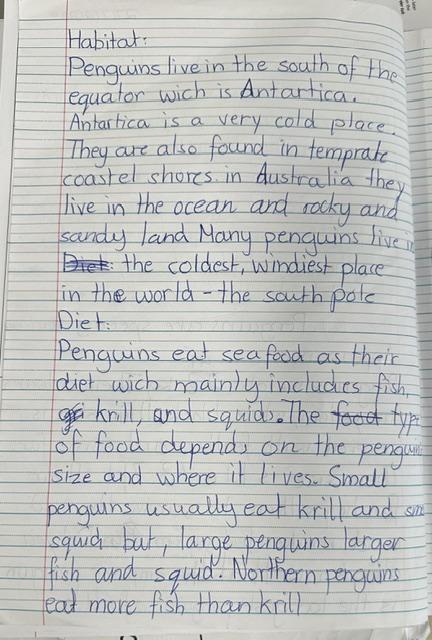 Habitat:
Penguins live in the south of the
equator wich is Antartica.
Antartica is a very cold place.
They are also found in temprate
coastel shores in Australia they
live in the ocean and rocky and
sandy land Many penguins live in
Diet: the coldest, windiest place
in the world - the south pole
Diet:
Penguins eat sea food as their
diet wich mainly includes fish,
krill, and squids. The food type
of food depends on the penguin
size and where it lives. Small
penguins usually eat krill and
squid but, large penguins larger
fish and squid. Northern penguins
eat more fish than krill